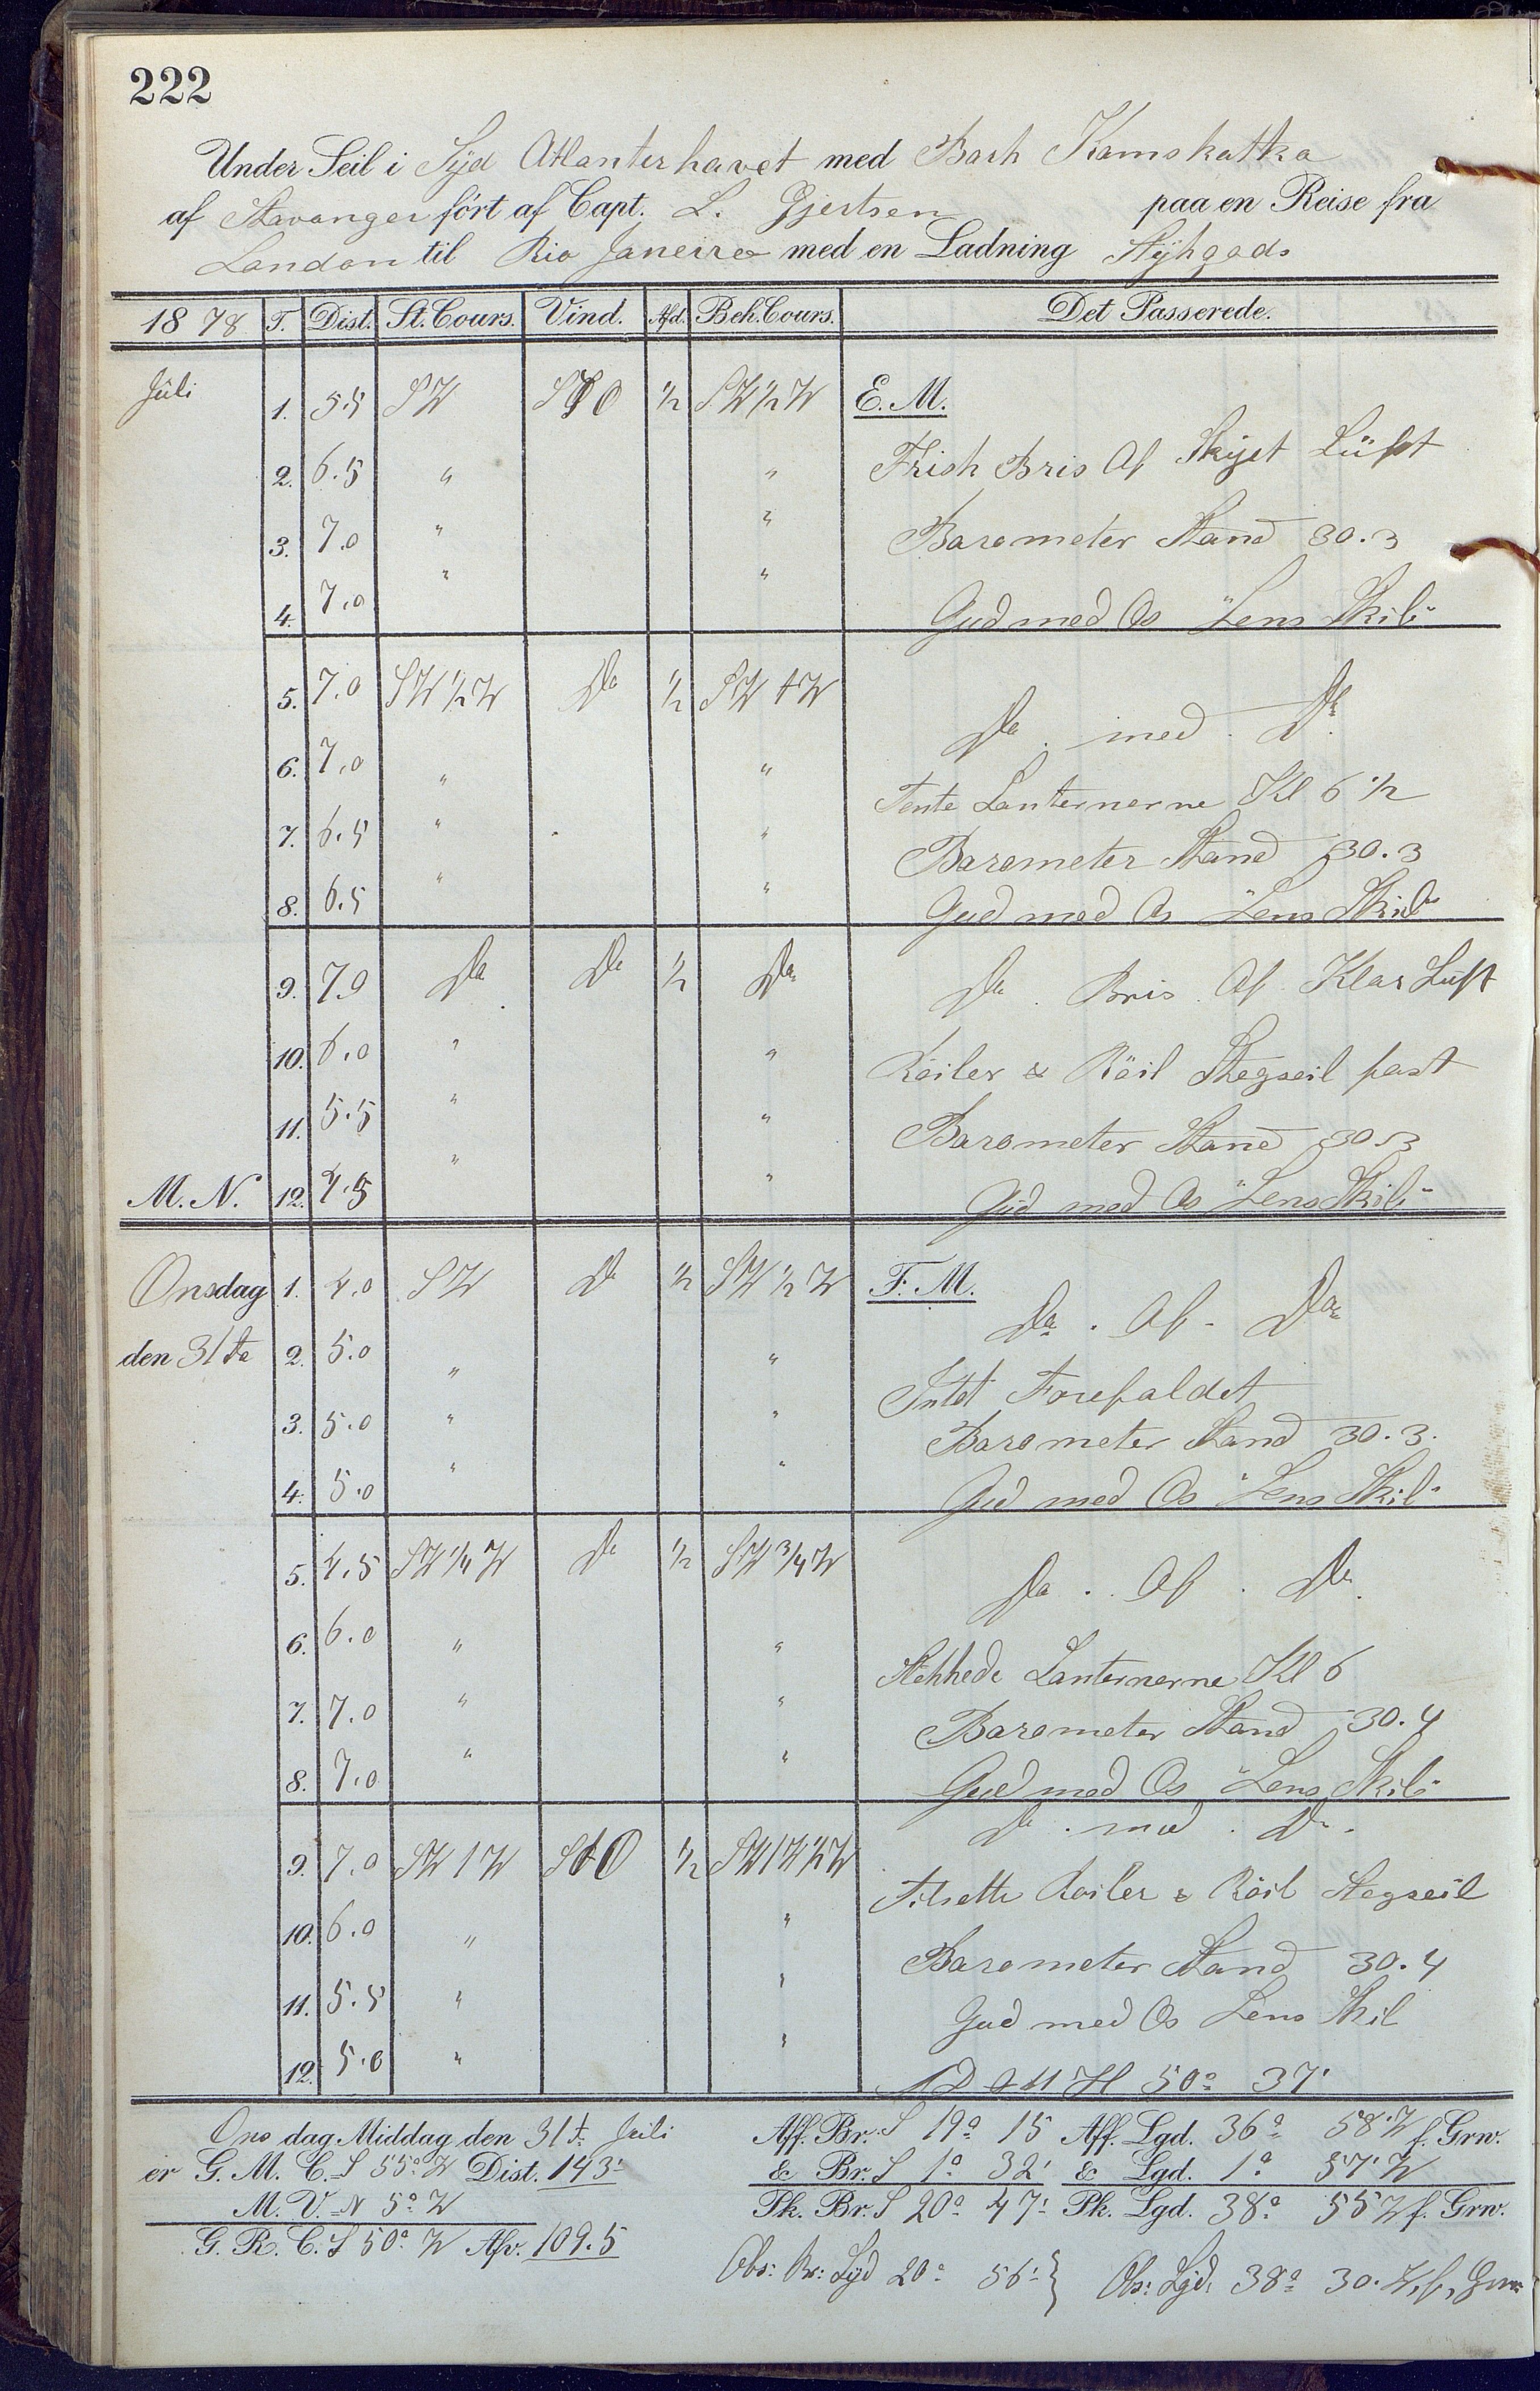 222
Under Seil i Syd Atlanterhavet med Bark Kamskatka
af Stavanger fört af Capt. L. Gjertsen paa en Reise fra
London til Rio Janeiro med en Ladning Stykgods
1878 T. Dist. St. Cours. Vind. Afd. Beh. Cours. Det Passerede.
Juli 1. 5.5 SW StO 1/2 SW 1/2 W E. M.
2. 6.5 " " Frisk Bris Af Skyet Lüft
3. 7.0 " " Barometer Stand 30.3
4. 7.0 " " Gud med Os "Lens Skib"
5. 7.0 SW 1/2 W Do 1/2 SW t W Do . med . Do
6. 7.0 " " Tente Lanternerne Kl 6 1/2
7. 6.5 " " Barometer Stand 30.3
8. 6.5 " " Gud med Os "Lens Skib"
9. 7.0 Do Do 1/2 Do Do . Bris . Af Klar Luft
10. 6.0 " " Röiler & Röil Stegseil fast
11. 5.5 " " Barometer Stand 30.3
M. N. 12. 4.5 " " Gud med Os "Lens Skib"
Onsdag 1. 4.0 SW Do 1/2 SW 1/2 W F. M. Do . Af . Do
den 31te 2. 5.0 " " Intet Forefaldet
3. 5.0 " " Barometer Stand 30.3.
4. 5.0 " " Gud med Os "Lens Skib"
5. 4.5 SW 1/4 W Do 1/2 SW 3/4 W Do . Af . Do
6. 6.0 " " Slukkede Lanternerne Kl 6
7. 7.0 " " Barometer Stand 30.4
8. 7.0 " " Gud med Os "Lens Skib"
Do . med . Do .
9. 7.0 SW t W StO 1/2 SW t W 1/2 W Tilsatte Roiler & Röil Stegseil
10. 6.0 " " Barometer Stand 30.4
11. 5.5 " " Gud med Os Lens Skib
12. 5.0 " " 50° 37'
Onsdag Middag den 31t. Juli Aff. Br. S 19° 15 Aff. Lgd. 36° 58' W f. Grw.
er G. M. C. S 55° W Dist. 143' & Br. S 1° 32' & Lgd. 1° 57' W
M. V. N 5° W Pk. Br. S 20° 47' Pk. Lgd. 38° 55 W f. Grw.
G. R. C. S 50° W Afv. 109.5
Obs: Br: Syd 20° 56' } Obs: Lgd: 38° 30. W. f. Grw: